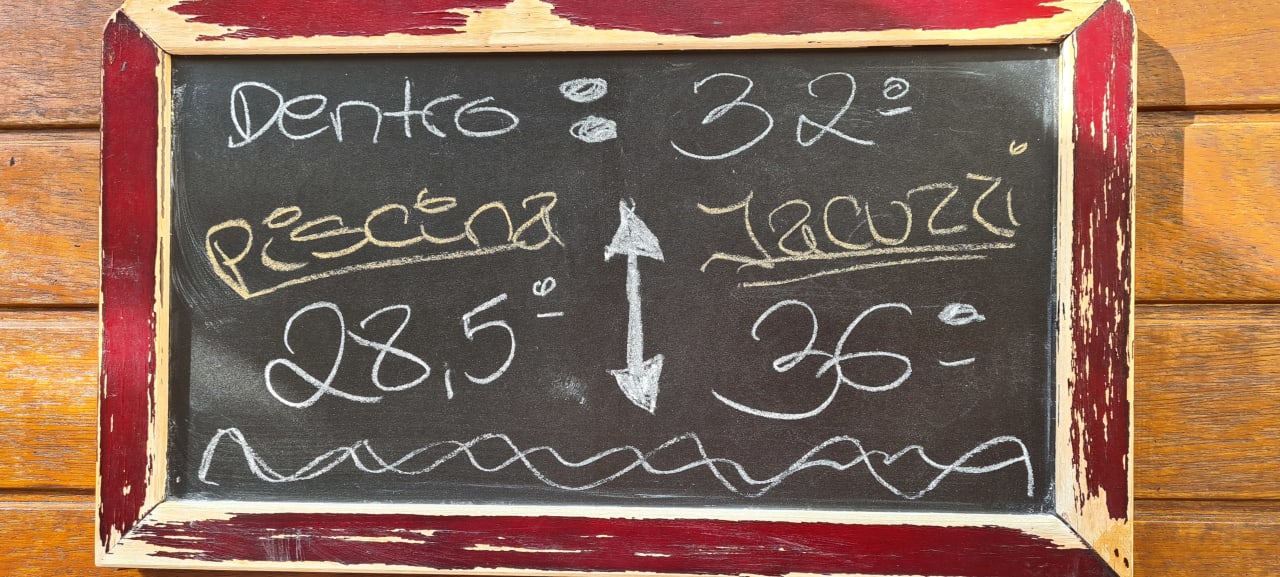 Dentro : 32º
Piscina Jacuzzi
28,5º 36º